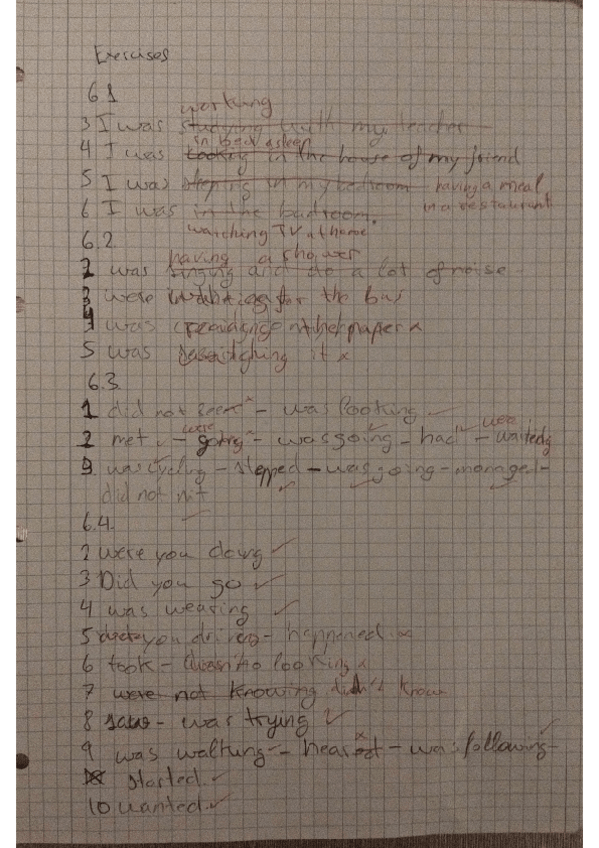 Exercises
6.1
working
3 I was studying with my teacher
in bed asleep
4 I was cooking in the house of my friend
5 I was sleeping in my bedroom having a meal
6 I was in the bedroom. in a restaurant
watching TV at home
6.2
having a shower
2 was singing and do a lot of noise
3 were waiting for the bus
4 was reading the paper x
5 was it x
6.3.
1 did not see - was looking ✓
were were
2 met ✓ - going - was going - had - waited
3 was cycling - stepped - was going - managed -
did not hit
6.4.
2 were you doing ✓
3 Did you go ✓
4 was wearing ✓
5 you driving - happened x
6 took - looking x
7 were not knowing didn't know
8 saw - was trying ✓
9 was walking - heared - was following -
started ✓
10 wanted ✓